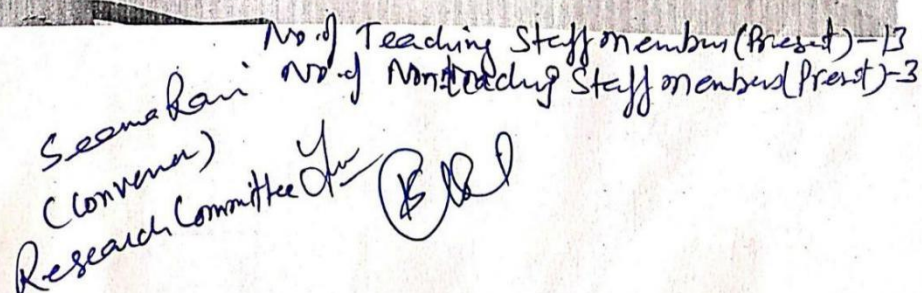 No. of Teaching Staff members (Present) - 13
No. of Nonteaching Staff members (Present) - 3
Seema Rani
(Convener)
Research Committee